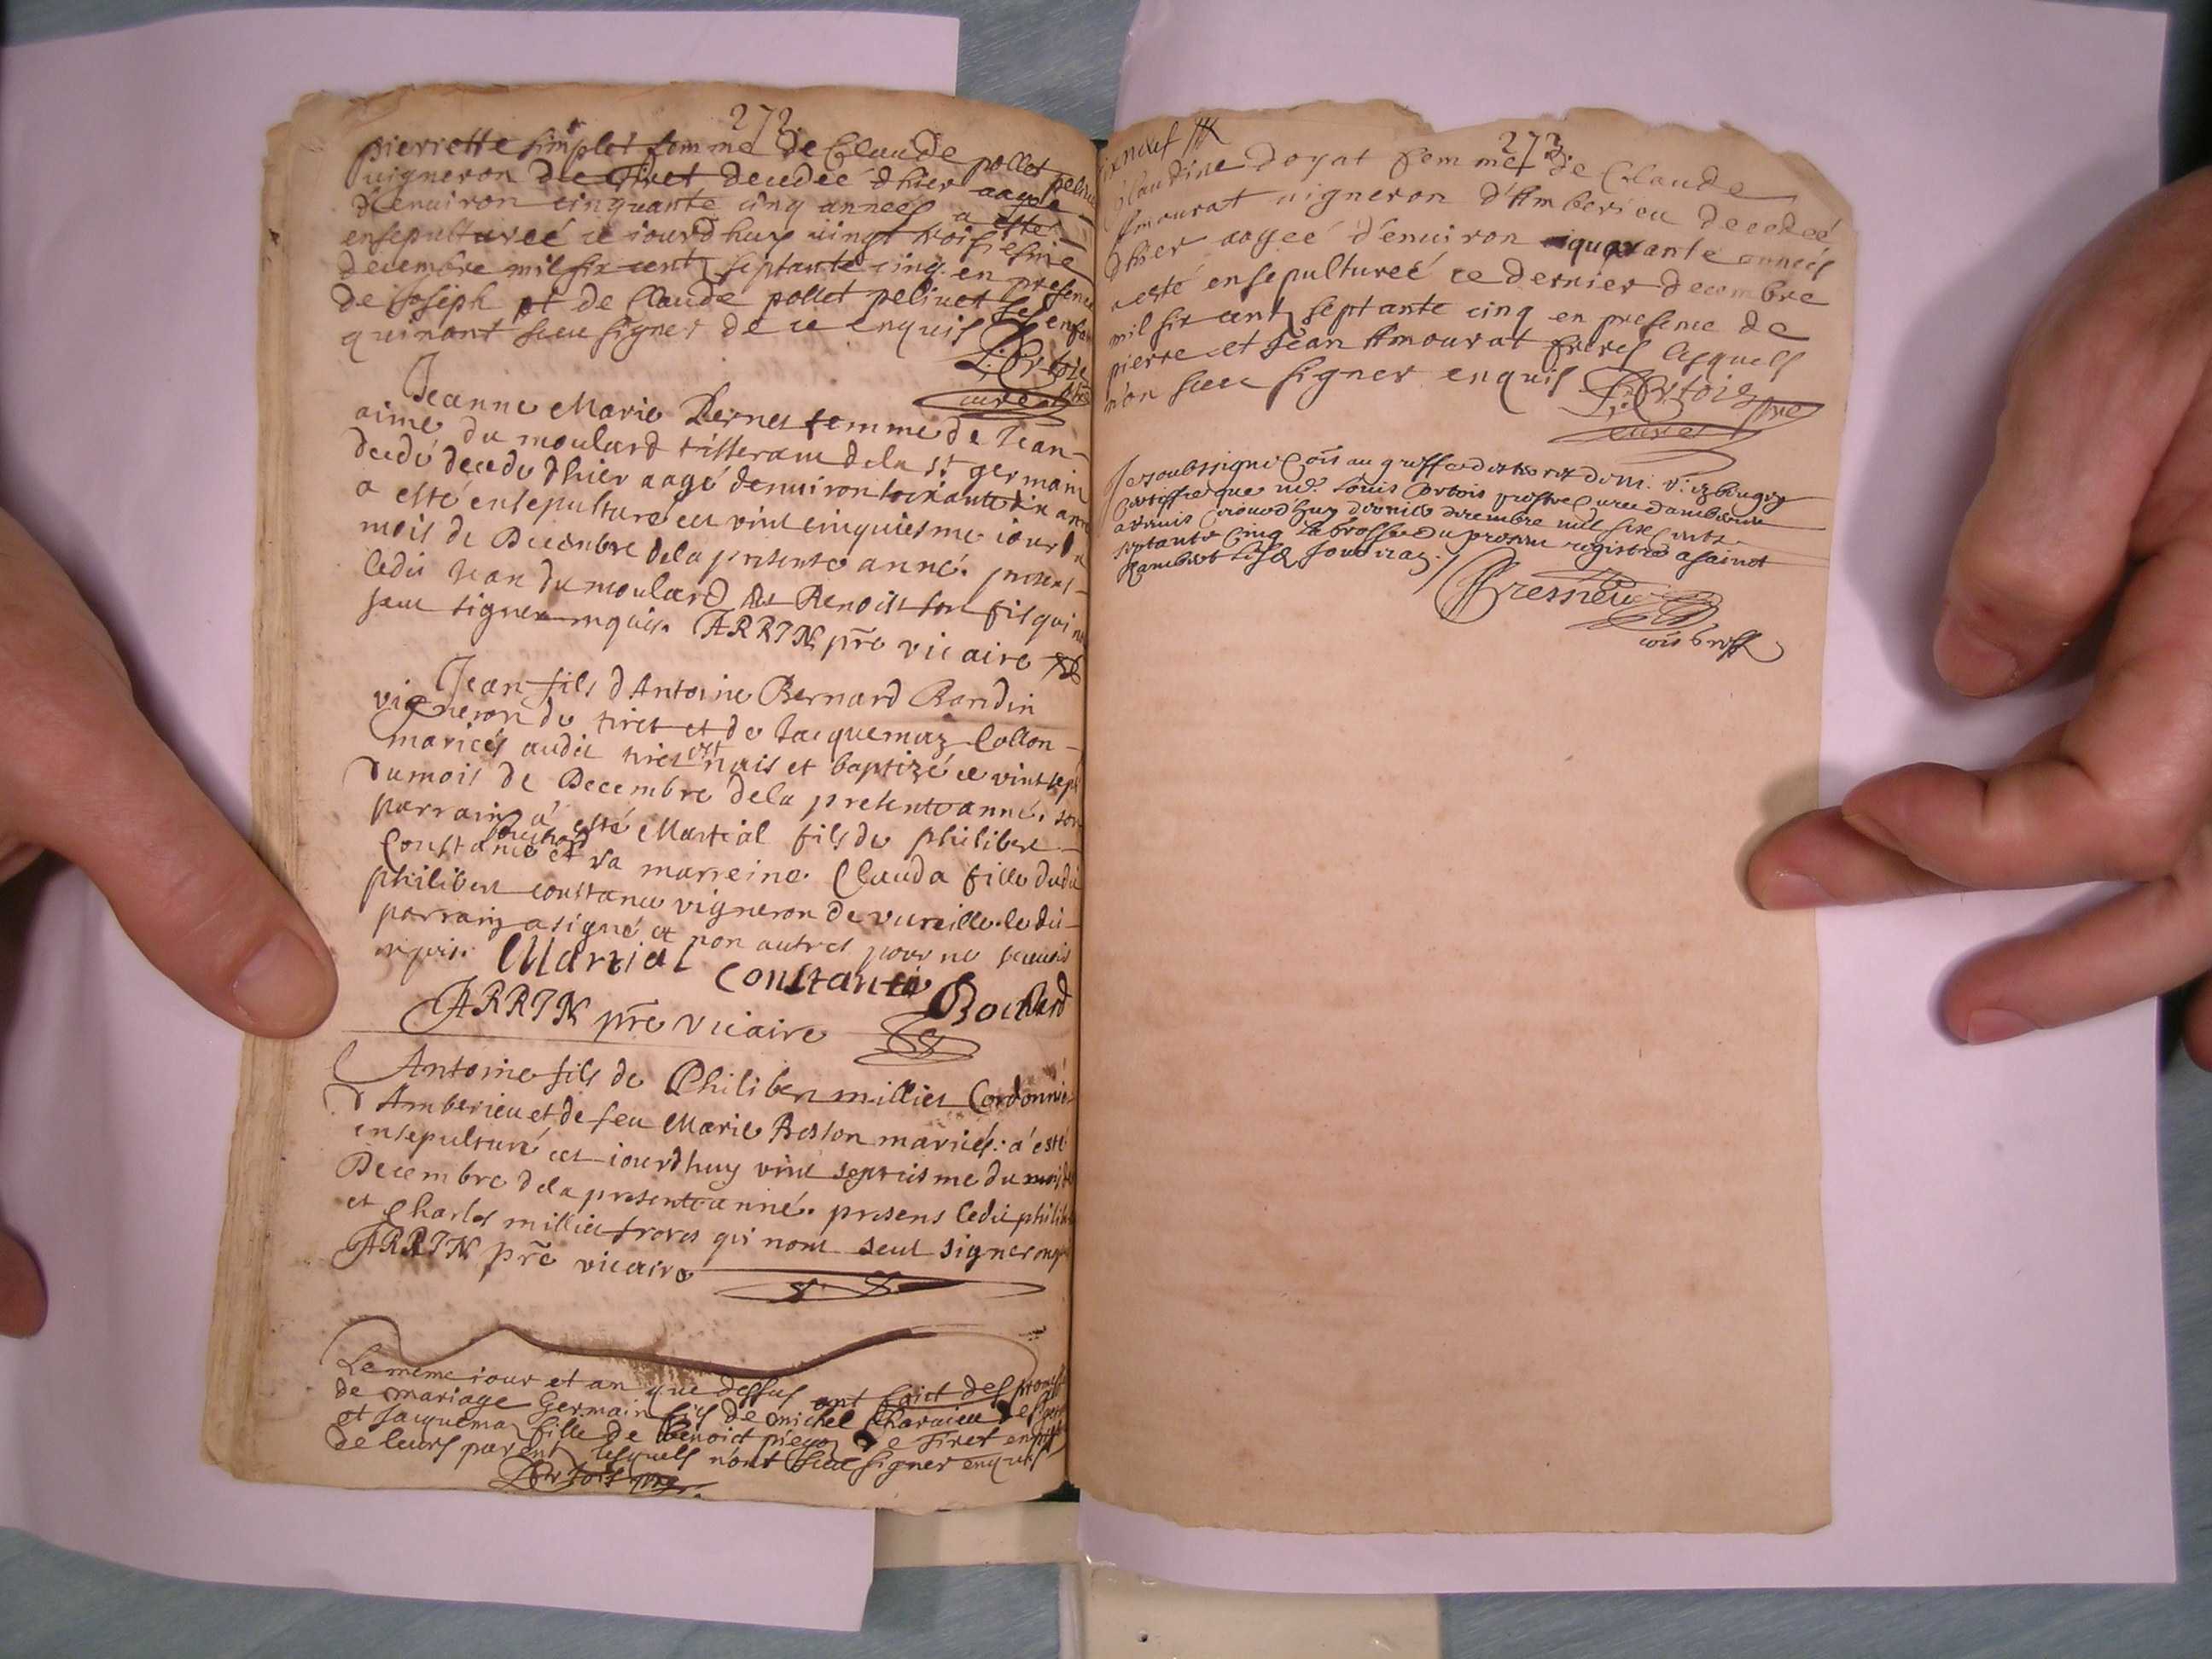 272.
pierrette simplet femme de Claude pollet pelin
uigneron de Tiret decedeé dhier aageé
denuiron cinquante cinq anneés a esté
ensepultureé ce iourdhuy uingt troisiesme
decembre mil six cents septante cinq en presence
de Joseph et de Claude pollet pelinet ses enfan
qui nont sceu signer de ce enquis
Jeanne Marie Bernet femme de Jean
aimé du moulard tisseran dela St germain
decede dhier aagé denuiron
a esté ensepulturé cet vint cinquiesme iour du
mois de Decembre dela presente anné. presens
ledit Jean du moulard et Benoist son fils qui n
seut signer enquis. ARRIN pre vicaire
Jean fils d Antoine Bernard Bondin
vigneron de tiret et de Jacquemaz Collon
mariés audit tiret est nais et baptizé ce vint sept
du mois de Decembre dela presente anné, son
parrain a esté Martial fils de philibert
Constance Bochard et sa marreine. Clauda fille dudit
philibert constance vigneron de vareille. le dit
parrain a signé et non autres pour ne scauoir
enquis. Martial Constance Bochard
ARRIN pre vicaire
Antoine fils de Philibert millier Cordonnie
d Amberieu et de feu Marie Boston mariés: a esté
ensepulturé cet iourdhuy vint septiesme du mois de
Decembre dela presente anné. presens ledit philib
et Charles millier freres qui nont seut signer enq
ARRIN pre vicaire
Le meme iour et an que dessus ont faict des promess
de mariage Germain fils de michel Charuieu de St ger
et Jacquema fille de Benoict de Tiret en
de leurs parents lesquels n'ont sceu signer enquis
273.
Claudine doyat femme de Claude
Amourat uigneron d'Amberieu decedeé
dhier aageé d'enuiron quarante anneés
a esté ensepultureé ce dernier decembre
mil six cents septante cinq en presence de
pierre et Jean Amourat freres lesquels
n'on sceu signer enquis
Je soubssigne Cois au greffe
Certiffie que Louis Cortois prestre Cure damberieu
a remis Ceiourdhuy dernier decembre mil six cents
septante Cinq la grosse du present registre a sainct
Rambert